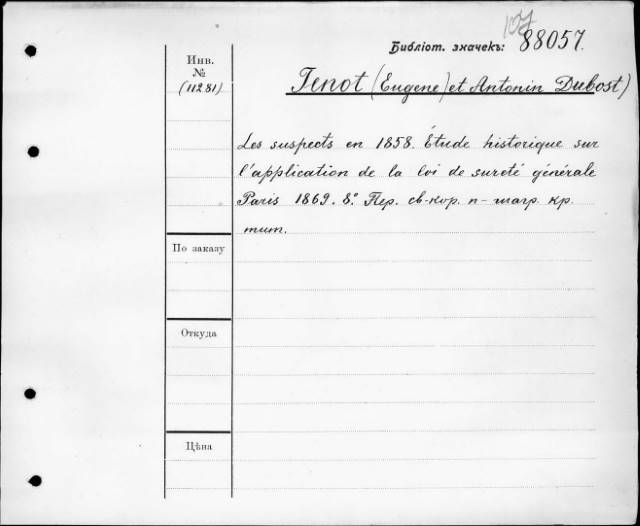 107
Библіот. значекъ: 88057.
Инв.
№
(11281)
Tenot (Eugene) et Antonin Dubost)
Les suspects en 1858. Étude historique sur
l'application de la loi de sureté générale
Paris 1869. 8.° Пер. св-кор. п-шагр. кр.
тит.
По заказу
Откуда
Цѣна